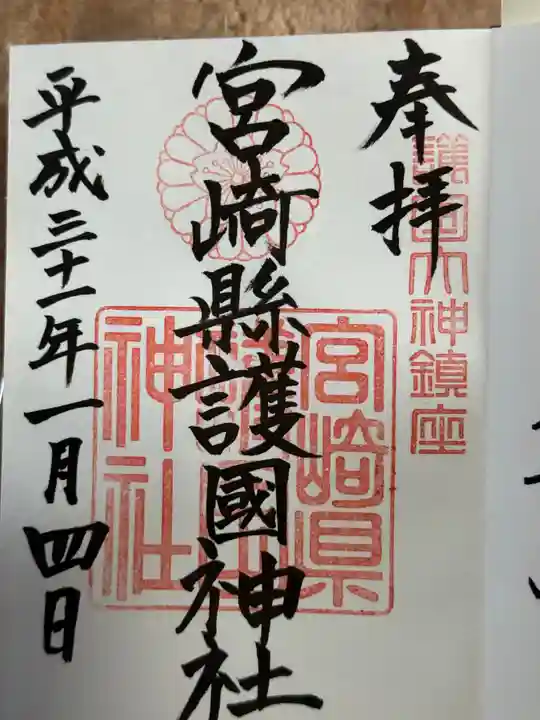 奉拝
護国大神鎮座
宮崎縣護國神社
宮崎県
護国
神社
平成三十一年一月四日